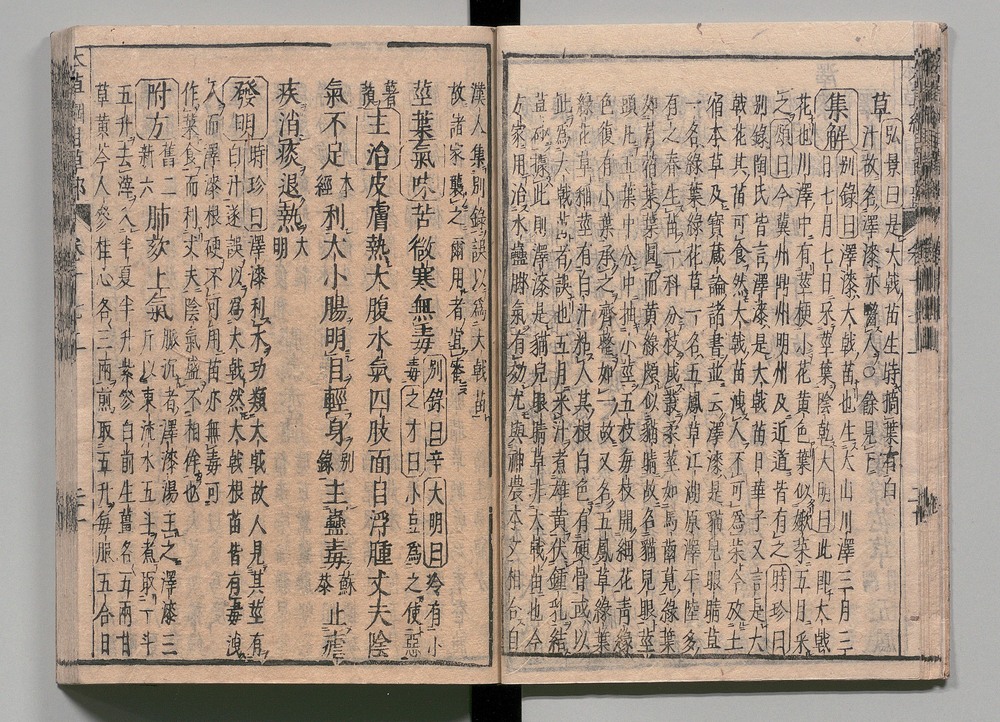 草弘景曰是大戟苗生時摘葉有白
汁故名澤漆亦嚙人○餘見下
集解別錄曰澤漆大戟苗也生太山川澤三月三
日七月七日采莖葉陰乾大明曰此即大戟
花也川澤中有莖梗小花黃色葉似嫩菜五月采
之頌曰今冀州鼎州明州及近道皆有之時珍曰
別錄陶氏皆言澤漆是大戟苗日華子又言是大
戟花其苗可食然大戟苗洩人不可為菜今攷土
宿本草及寶藏論諸書並云澤漆是貓兒眼睛草
一名綠葉綠花草一名五鳳草江湖原澤平陸多
有之春生苗一科分枝成叢柔莖如馬齒莧綠葉
如苜蓿葉葉圓而黃綠頗似貓睛故名貓兒眼莖
頭凡五葉中分中抽小莖五枝每枝開細花青綠
色復有小葉承之齊整如一故又名五鳳草綠葉
綠花草掐莖有白汁粘人其根白色有硬骨或以
此為大戟苗者誤也五月采汁煮雄黃伏鍾乳結
草砂據此則澤漆是貓兒眼睛草非大戟苗也今
方家用治水蠱腳氣有効尤與神農本文相合自
漢人集別錄誤以為大戟苗
故諸家襲之爾用者宜審
莖葉氣味苦微寒無毒別錄曰辛大明曰冷有小
毒之才曰小豆為之使惡
薯蕷主治皮膚熱大腹水氣四肢面目浮腫丈夫陰
氣不足本經利大小腸明目輕身別錄主蠱毒蘇恭止瘧
疾消痰退熱大明
發明時珍曰澤漆利水功類大戟故人見其莖有
白汁遂誤以為大戟然大戟根苗皆有毒洩
人而澤漆根硬不可用苗亦無毒可
作菜食而利丈夫陰氣甚不相侔也
附方舊二新六肺欬上氣脈沉者澤漆湯主之澤漆三
五升去滓入半夏半升紫參白前生薑各五兩甘
草黃芩人參桂心各三兩煎取五升每服五合日